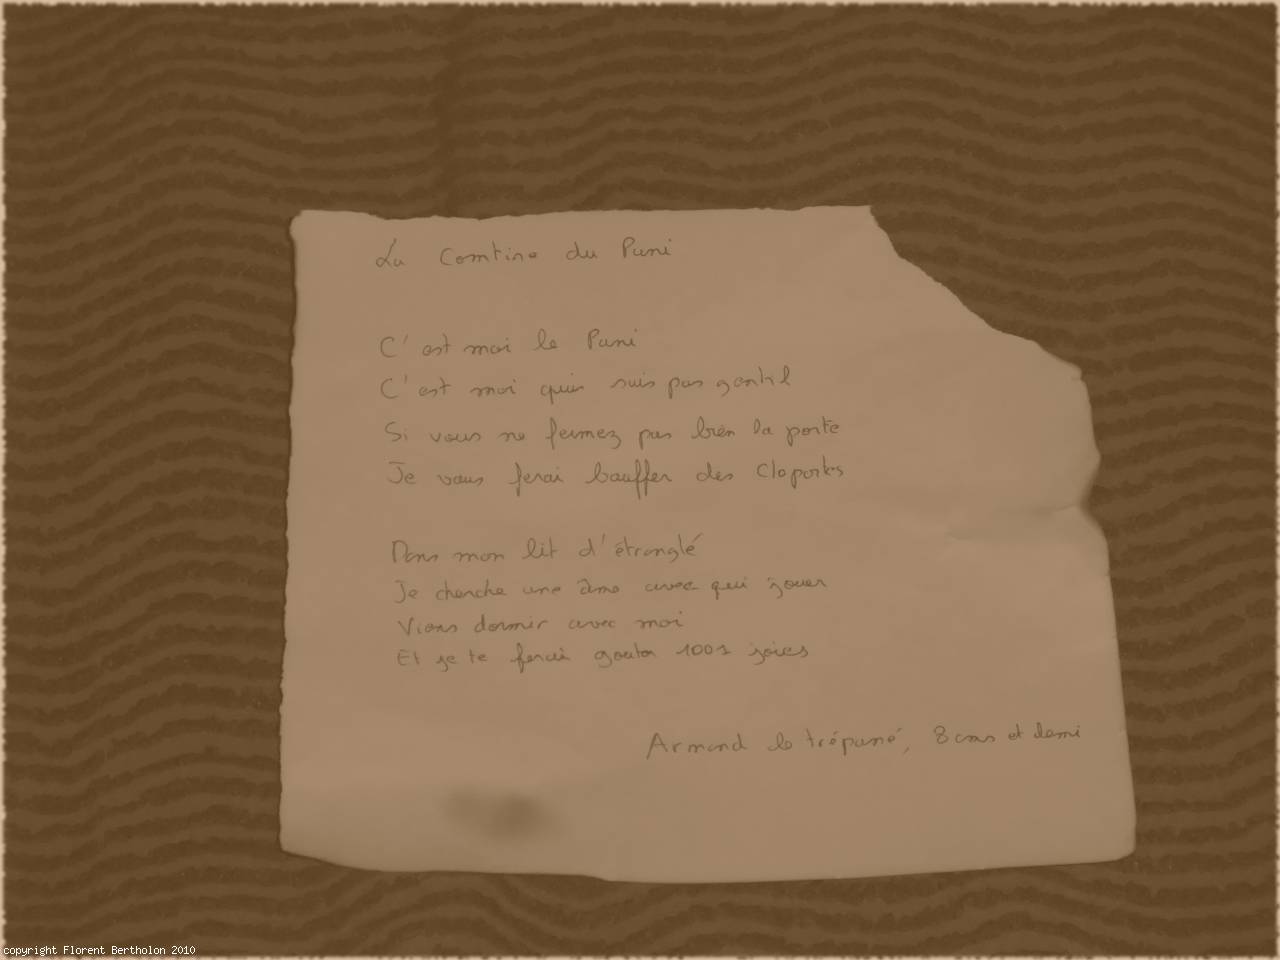 La Comtine du Puni
C'est moi le Puni
C'est moi qui suis pas gentil
Si vous ne fermez pas bien la porte
Je vous ferai bouffer des Cloportes
Dans mon lit d'étranglé
Je cherche une âme avec qui jouer
Viens dormir avec moi
Et je te ferai gouter 1001 joies
Armand le trépané, 8 ans et demi
copyright Florent Bertholon 2010